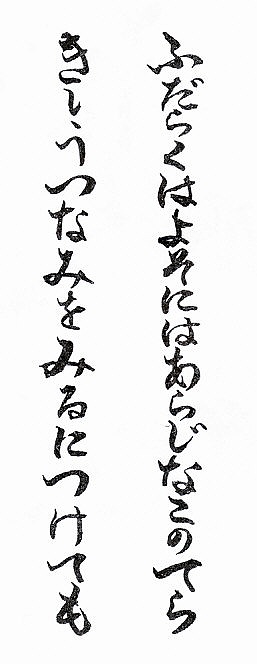 ふだらくはよそにはあらじなこのてら
きしうつなみをみるにつけても